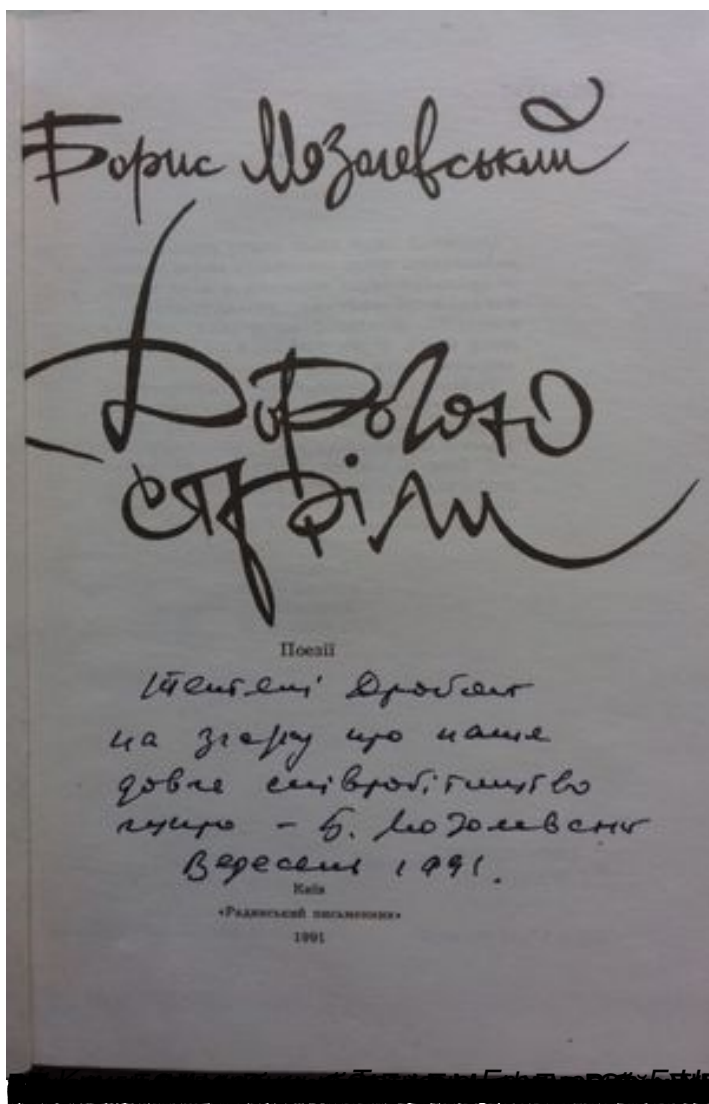 Борис Мозолевський
Дорогою
стріли
Поезії
Тетяні
на згадку про наше
довге співробітництво
щиро – Б. Мозолевський
Вересень 1991.
Київ
«Радянський письменник»
1991